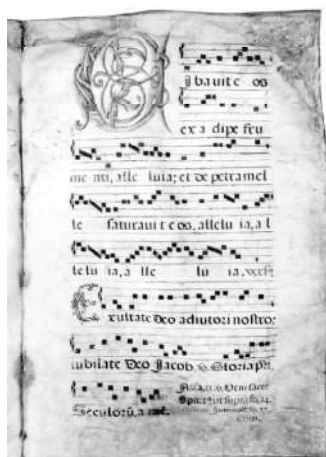 C ibavit e os
ex a dipe fru
me nti, alle luia; et de petra mel
le saturavi t e os, allelu ia, a l
lelu ia, a lle lu ia. vers
E xultate Deo adiutori nostro:
iubilate Deo Jacob. v. Gloria p̄ri.
Seculorū, a mē. Veni sanct
ut supra fo.